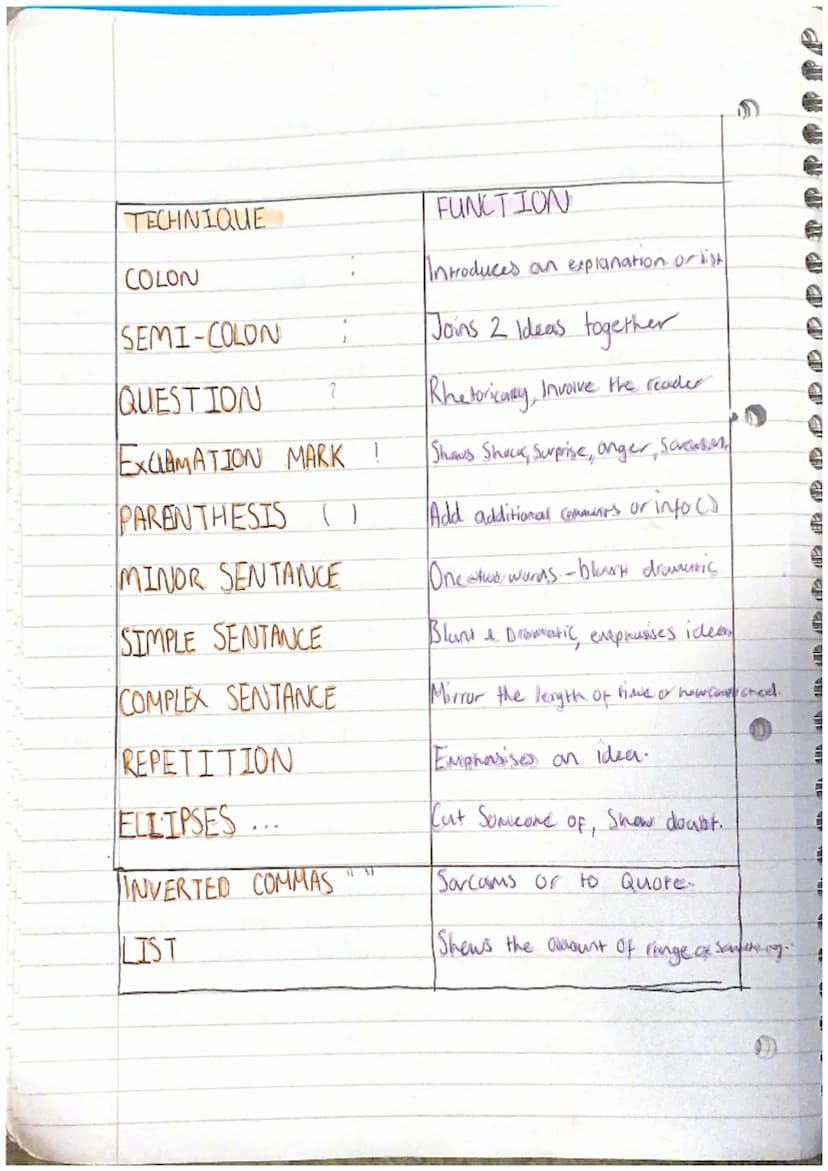 TECHNIQUE FUNCTION
COLON : Introduces an explanation or list
SEMI-COLON ; Joins 2 Ideas together
QUESTION ? Rhetorically, Involve the reader
EXCLAMATION MARK ! Shows Shock, Surprise, anger, Sarcasm
PARENTHESIS ( ) Add additional comments or info ()
MINOR SENTANCE One words - blunt dramatic
SIMPLE SENTANCE Blunt & Dramatic, emphasises ideas
COMPLEX SENTANCE Mirror the length of time or how
REPETITION Emphasises an idea.
ELLIPSES ... Cut Someone of, Show doubt.
INVERTED COMMAS " " Sarcams or to Quote.
LIST Shows the amount of range of Something.